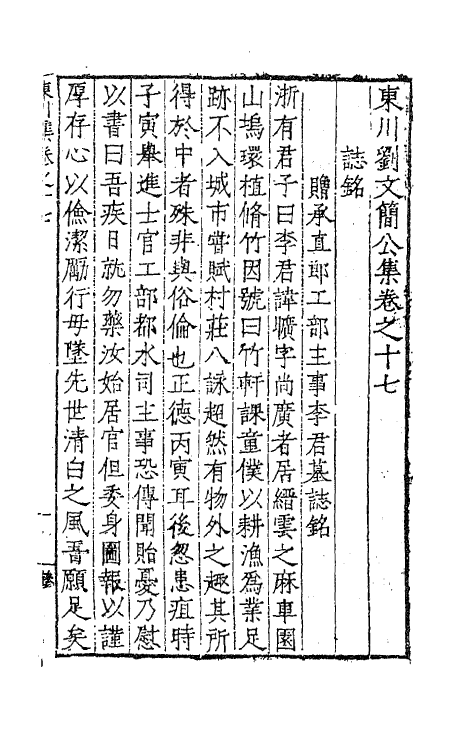 東川劉文簡公集卷之十七
誌銘
贈承直郎工部主事李君墓誌銘
浙有君子曰李君諱懭字尚廣者居縉雲之麻車園
山塢環植脩竹因號曰竹軒課童僕以耕漁爲業足
跡不入城市嘗賦村莊八詠超然有物外之趣其所
得於中者殊非與俗倫也正德丙寅耳後忽患疽時
子寅舉進士官工部都水司主事恐傳聞貽憂乃慰
以書曰吾疾日就勿藥汝始居官但委身圖報以謹
厚存心以儉潔勵行毋墜先世清白之風吾願足矣
東川集卷之十七
一